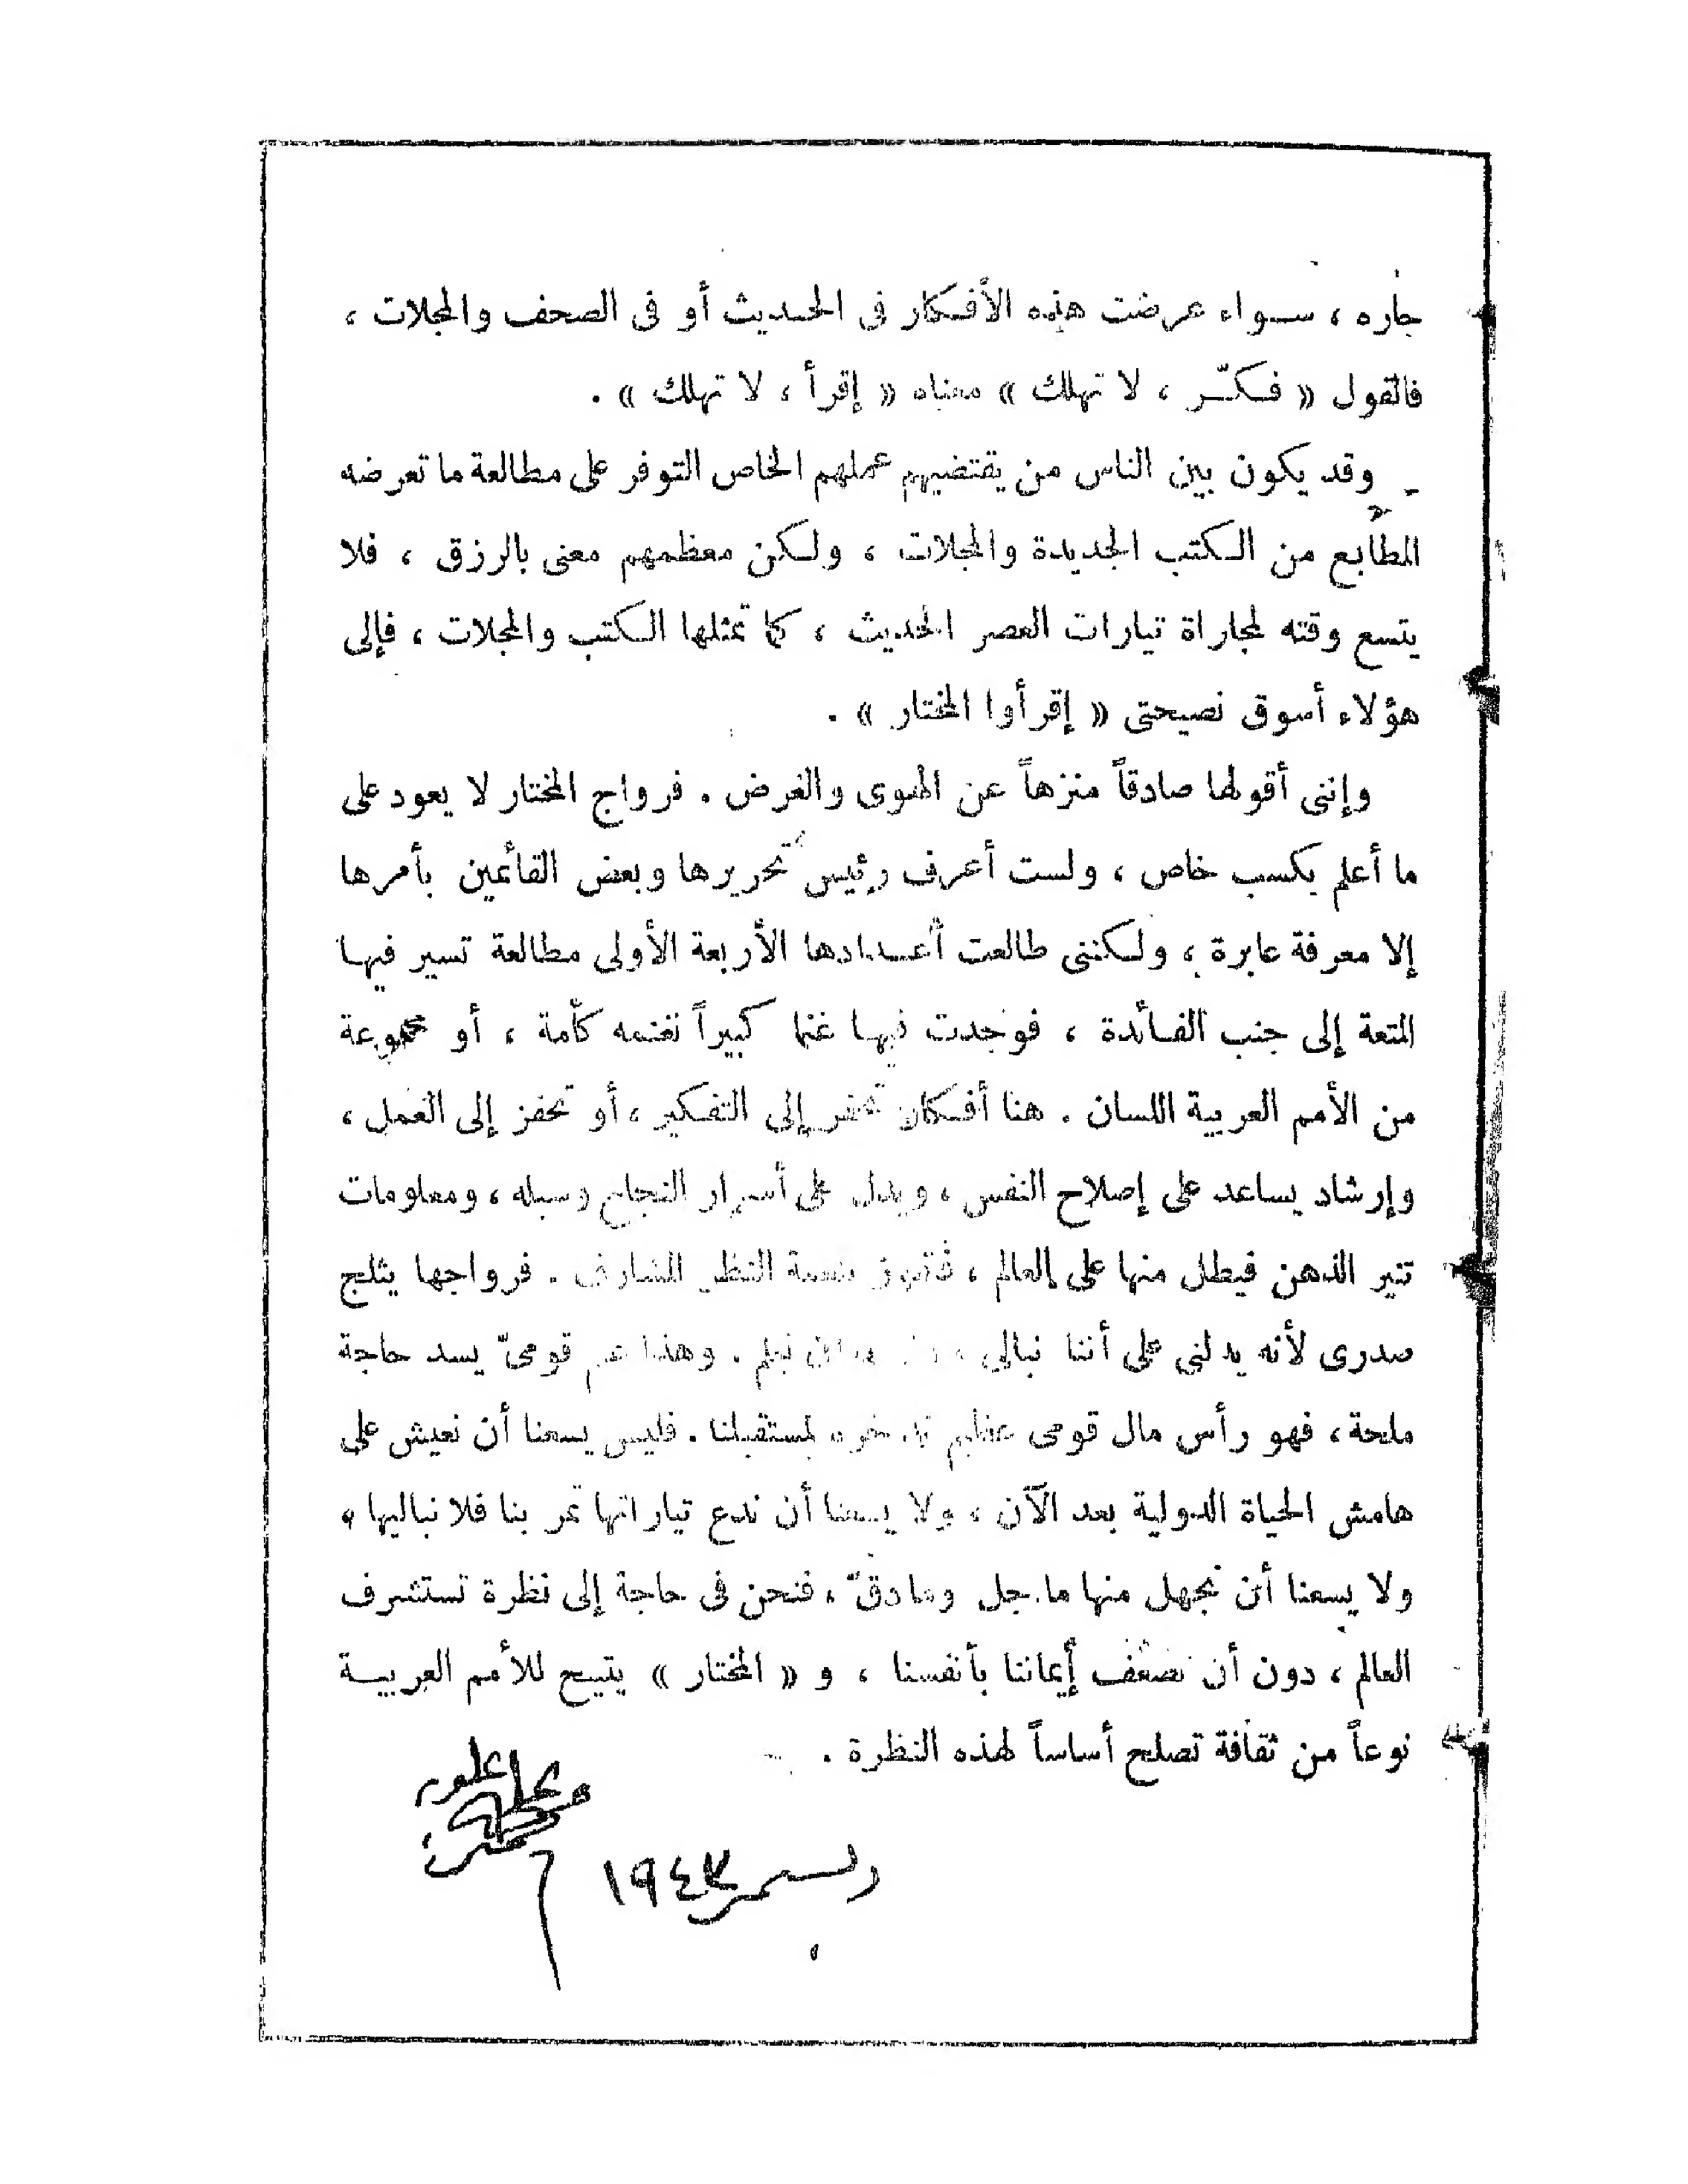 جاره ، سـواء عرضت هذه الأفـكار فى الحـديث أو فى الصحف والمجلات ،
فالقول « فـكّـر ، لا تهلك » معناه « إقرأ ، لا تهلك » .
وقد يكون بين الناس من يقتضيهم عملهم الخاص التوفر على مطالعة ما تعرضه
المطابع من الـكتب الجديدة والمجلات ، ولـكن معظمهم معنى بالرزق ، فلا
يتسع وقته لمجاراة تيارات العصر الحديث ، كما تمثلها الـكتب والمجلات ، فإلى
هؤلاء أسوق نصيحتى « إقرأوا المختار » .
وإننى أقولها صادقاً منزهاً عن الهوى والغرض . فرواج المختار لا يعود على
ما أعلم بكسب خاص ، ولست أعرف رئيس تحريرها وبعض القائمين بأمرها
إلا معرفة عابرة ، ولـكننى طالعت أعـدادها الأربعة الأولى مطالعة تسير فيهـا
المتعة إلى جنب الفـائدة ، فوجدت فيهـا غنما كبيراً نغنمه كأمة ، أو مجموعة
من الأمم العربية اللسان . هنا أفـكار تحفز إلى التفـكير ، أو تحفز إلى العمل ،
وإرشاد يساعد على إصلاح النفس ، ويدل على أسرار النجاح وسبله ، ومعلومات
تنير الذهن فيطل منها على العالم ، النظر . فرواجها يثلج
صدرى لأنه يدلنى على أننا نبالى نعلم . وهذا قومىّ يسد حاجة
ملحة ، فهو رأس مال قومى عظيم لمستقبلنا . فليس يسعنا أن نعيش على
هامش الحياة الدولية بعد الآن ، ولا يسعنا أن ندع تياراتها تمر بنا فلا نباليها ،
ولا يسعنا أن نجهل منها ما جل وما دقّ ، فنحن فى حاجة إلى نظرة تستشرف
العالم ، دون أن نضعف إيماننا بأنفسنا ، و « المختار » يتيـح للأمم العربيـة
نوعاً من ثقافة تصلح أساساً لهذه النظرة .
ديسمبر ١٩٤٣